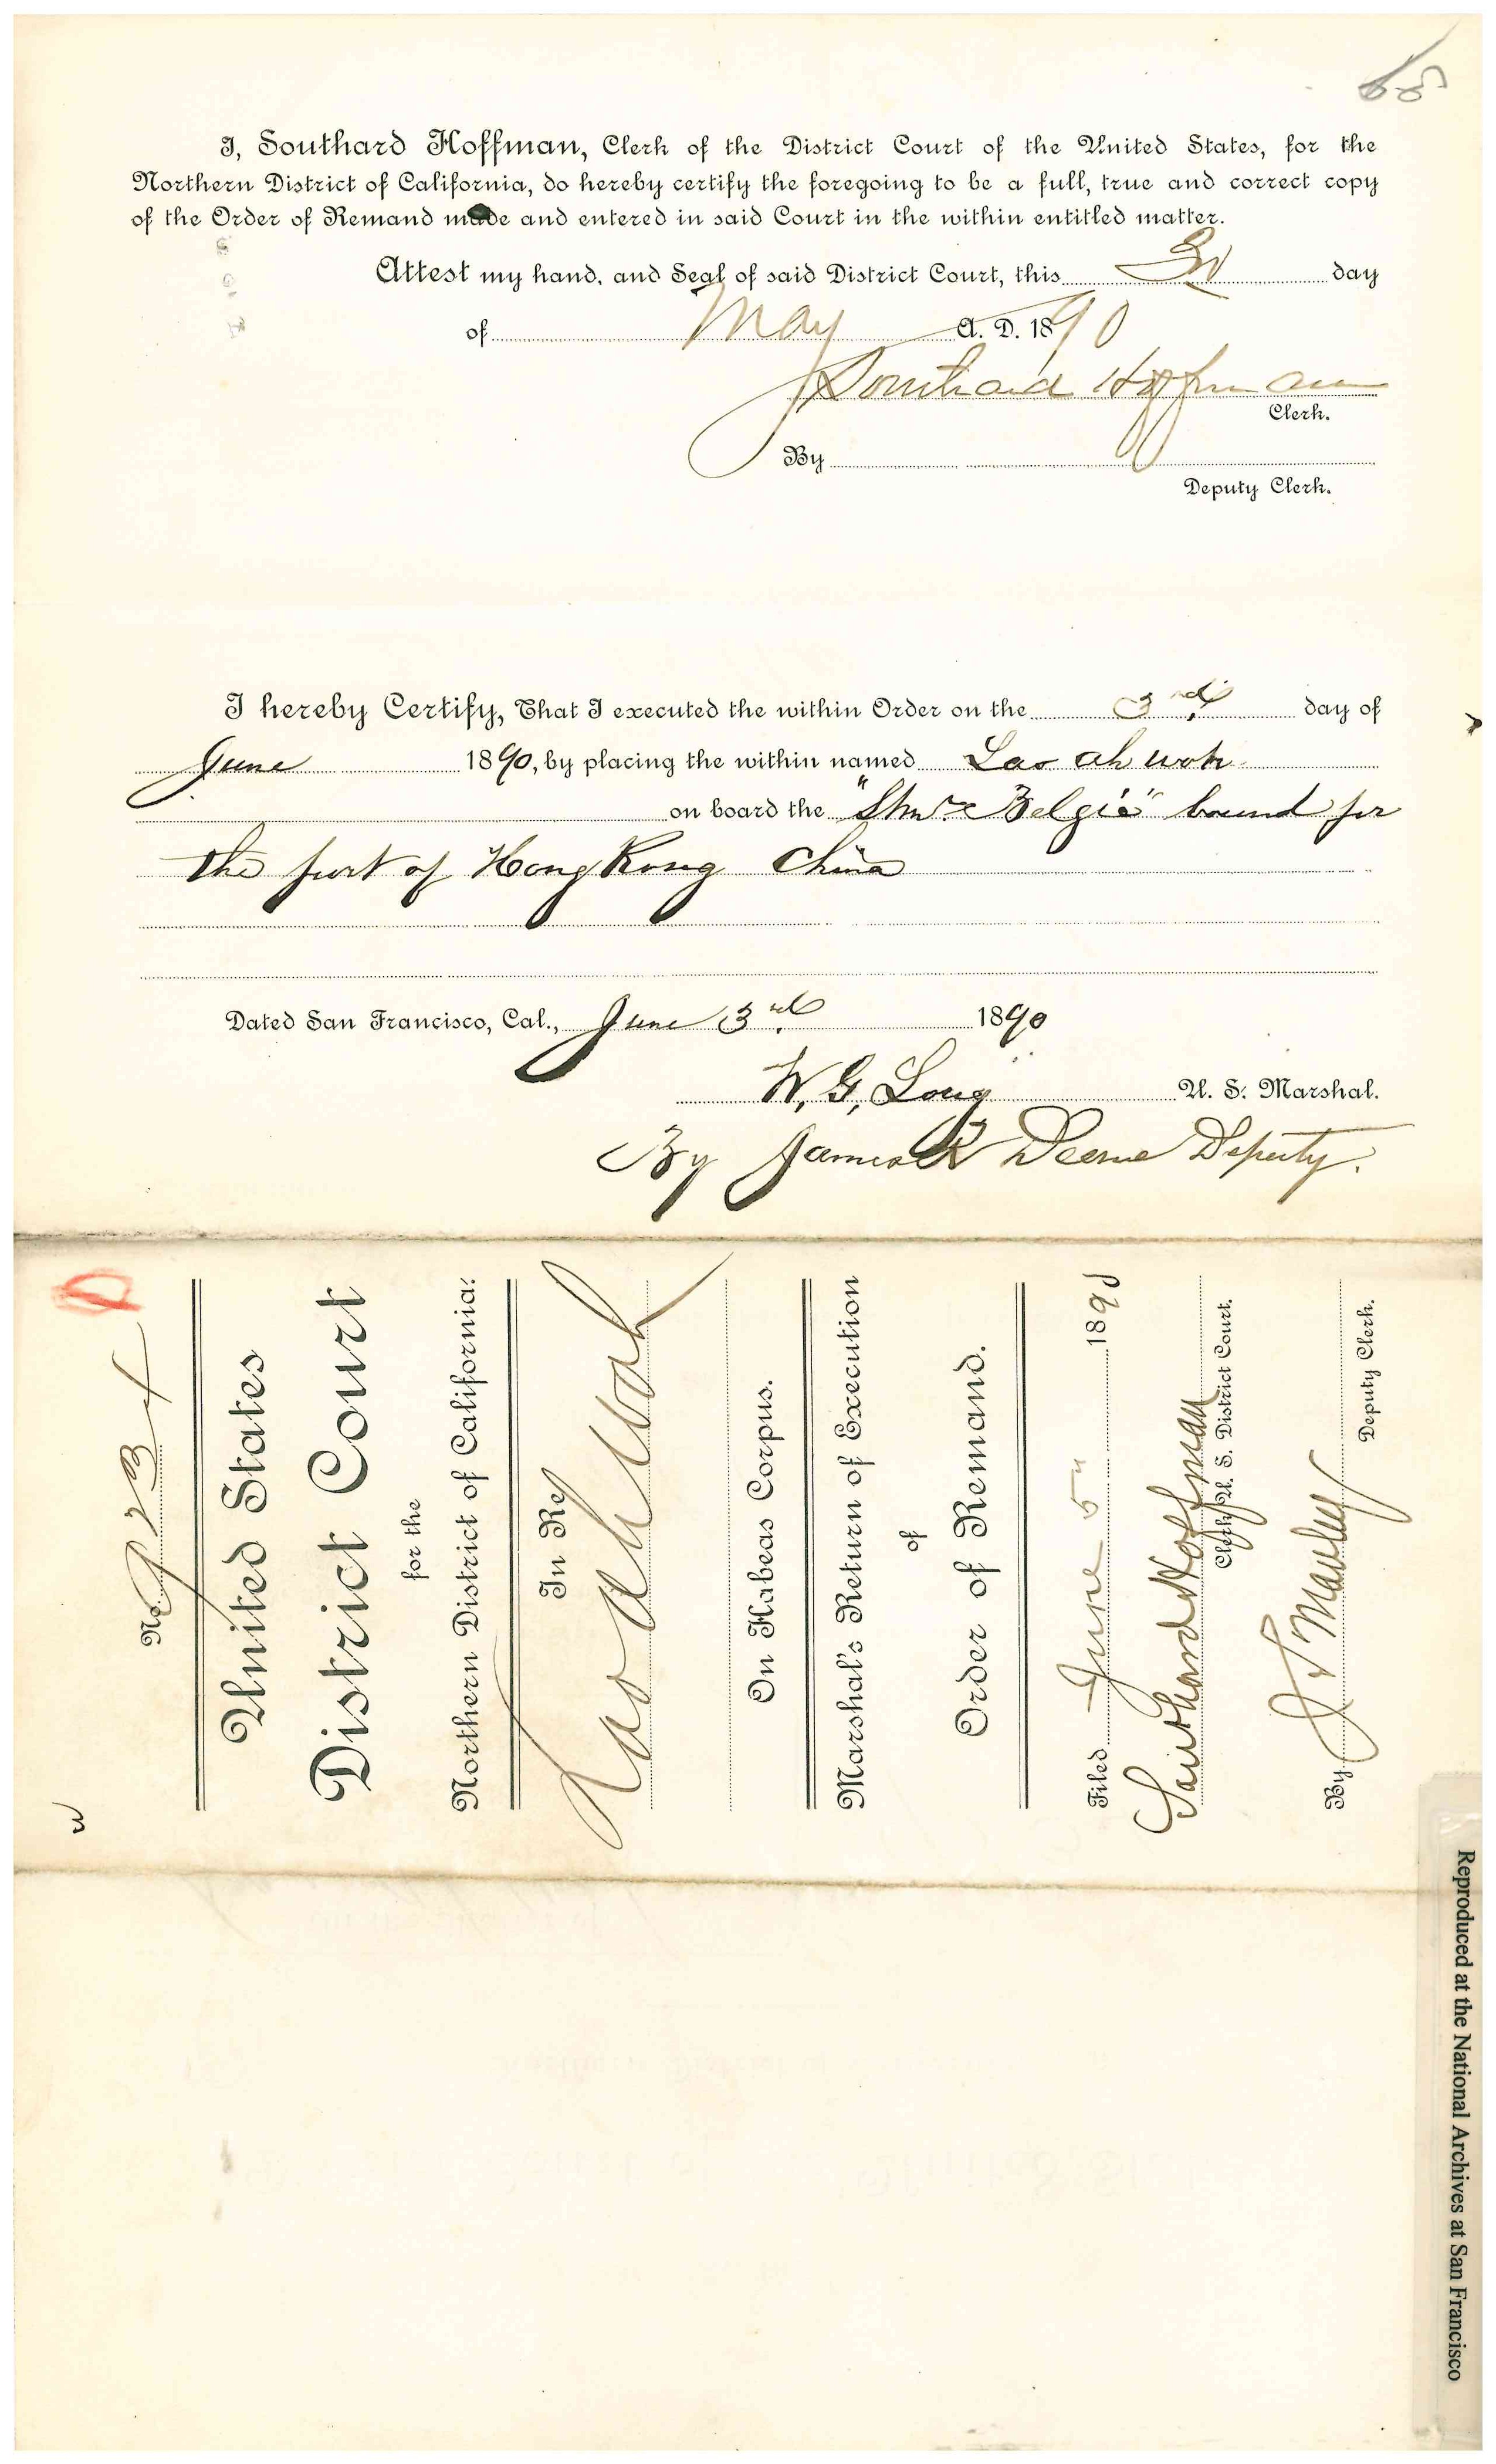 I, Southard Hoffman, Clerk of the District Court of the United States, for the
Northern District of California, do hereby certify the foregoing to be a full, true and correct copy
of the Order of Remand made and entered in said Court in the within entitled matter.
Attest my hand, and Seal of said District Court, this day
of May A. D. 1890
Southard Hoffman
Clerk.
By
Deputy Clerk.
I hereby Certify, That I executed the within Order on the 3rd day of
June 1890, by placing the within named Lao ah woh
on board the "Stmr Belgic" bound for
the port of Hong Kong China
Dated San Francisco, Cal., June 3rd 1890
W. G. Long U. S. Marshal.
By James R Deane Deputy.
No. 9234
United States
District Court
for the
Northern District of California.
In Re
Lao Ah Wah
On Habeas Corpus.
Marshal's Return of Execution
of
Order of Remand.
Filed June 5" 1890
Southard Hoffman
Clerk U. S. District Court.
By J S Manley
Deputy Clerk.
Reproduced at the National Archives at San Francisco